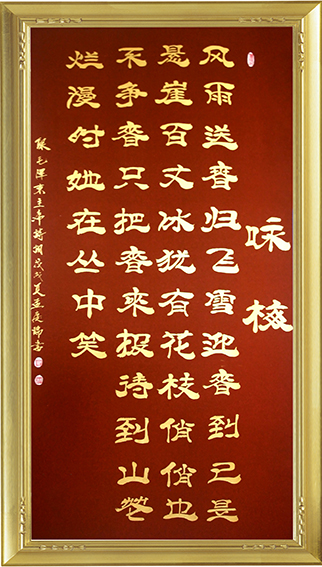 咏梅
风雨送春归飞雪迎春到已是
悬崖百丈冰犹有花枝俏俏也
不争春只把春来报待到山花
烂漫时她在丛中笑
毛泽东主席诗词